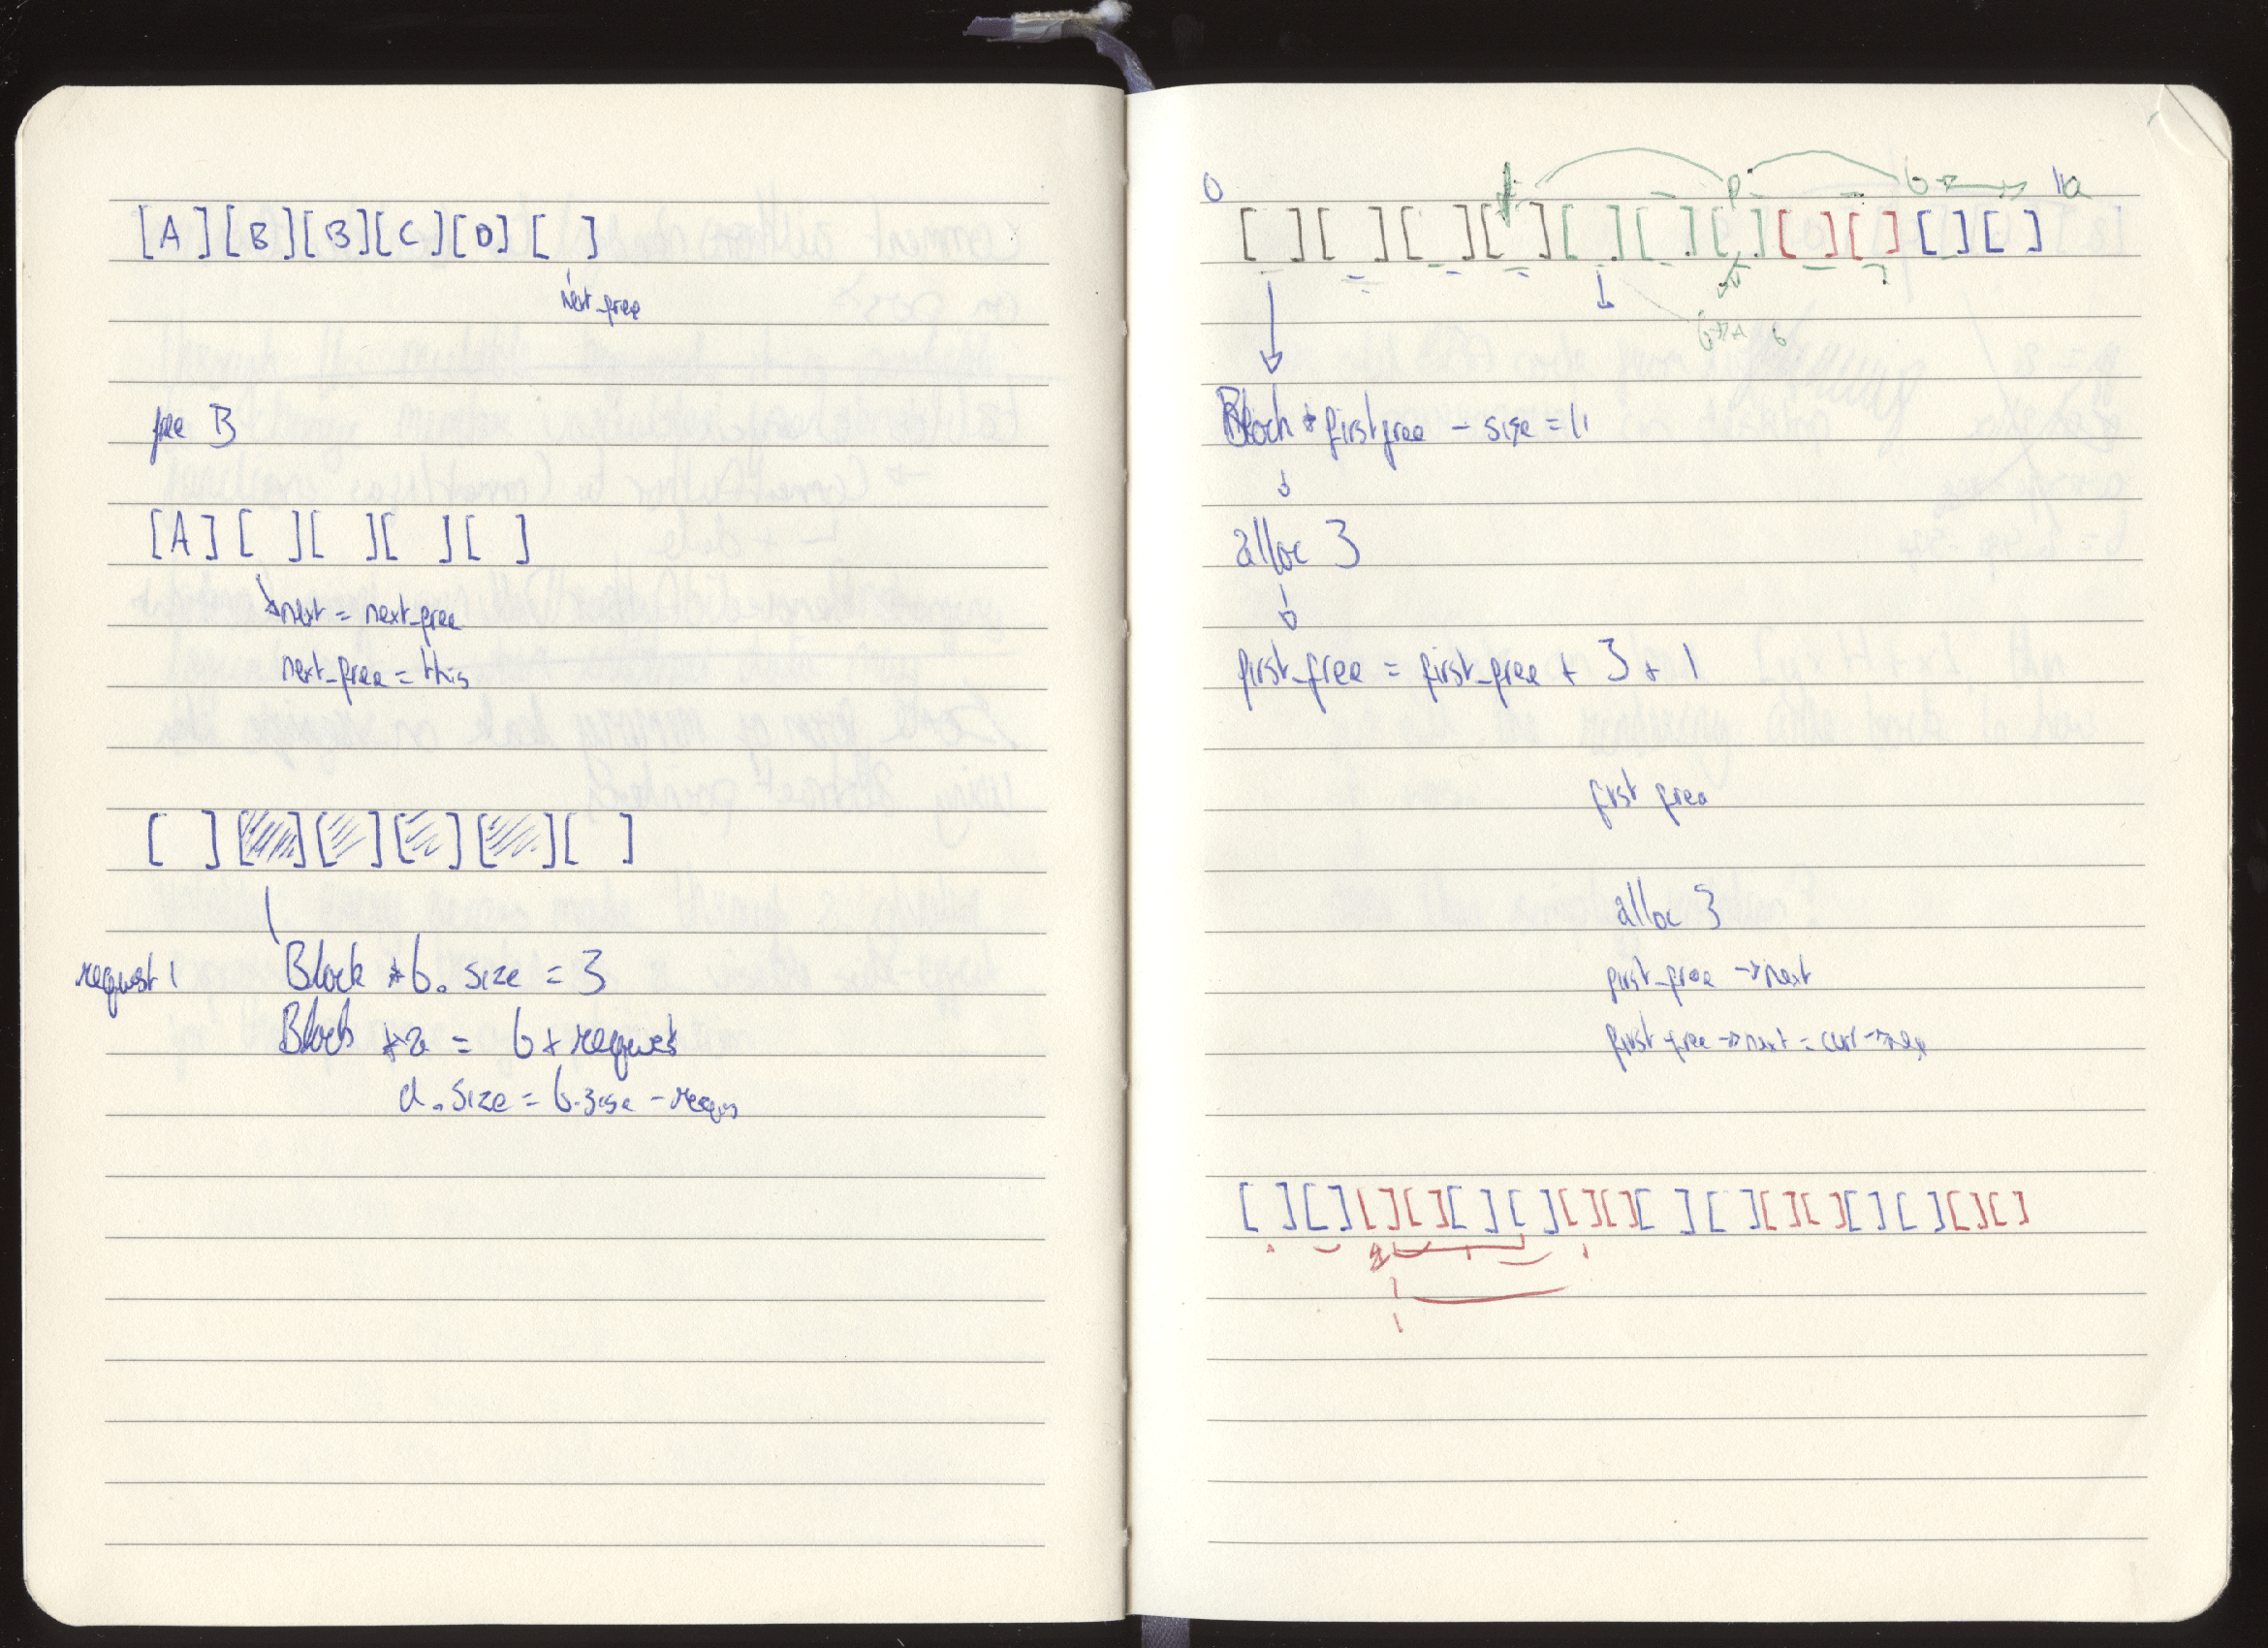 [A][B][B][C][D][ ]
next_free
free B
[A][ ][ ][ ][ ]
next = next_free
next_free = this
[ ][ ][ ][ ][ ][ ]
request 1
Block *b. size = 3
Block *a = b + request
a.size = b.size -
0
p
b
[ ][ ][ ][ ][ ][ ][ ][ ][ ][ ][ ]
b
Block * firstfree - size = 11
alloc 3
first_free = first_free + 3 + 1
first free
alloc 3
first_free -> next
first_free -> next = curr ->
[ ][ ][ ][ ][ ][ ][ ][ ][ ][ ][ ][ ][ ][ ][ ][ ]